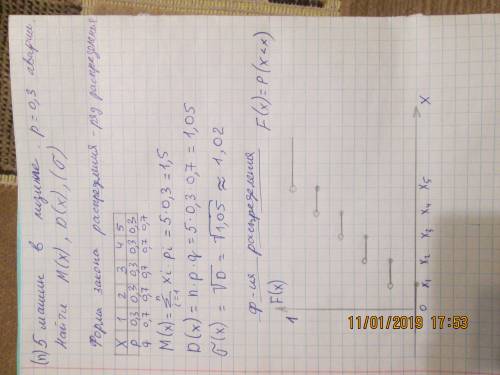 (п) 5 машин в лизинге. p = 0,3 аварии
Найти M(x), D(x), (σ)
Форма закона распределения - ряд распределения
X 1 2 3 4 5
P 0,3 0,3 0,3 0,3 0,3
q 0,7 0,7 0,7 0,7 0,7
M(x) = Σ xi pi = 5·0,3 = 1,5
n
i=1
D(x) = n·p·q = 5·0,3·0,7 = 1,05
σ(x) = √D = √1,05 ≈ 1,02
ф-ия распределения F(x) = P(X<x)
F(x)
1
0 x1 x2 x3 x4 x5 X
11/01/2019 17:53